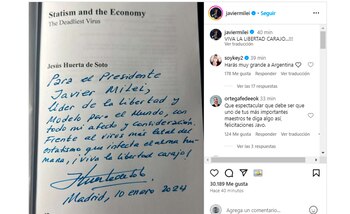 Statism and the Economy
The Deadliest Virus
Jesús Huerta de Soto
Para el Presidente
Javier Milei,
Líder de la Libertad y
Modelo para el Mundo, con
todo mi afecto y consideración
Frente al virus más letal del
estatismo que infecta el alma hu-
mana, ¡viva la libertad carajo!
Huerta de Soto
Madrid, 10 enero 2024
javiermilei • Seguir
javiermilei 40 min
VIVA LA LIBERTAD CARAJO...!!!
Ver traducción
soykey2 40 min
Harás muy grande a Argentina
178 Me gusta Responder
Ver traducción
Ver las 17 respuestas
ortegafedeok 38 min
Que espectacular que debe ser que
uno de tus más importantes
maestros te diga algo así,
felicitaciones Javo.
Ver las 5 respuestas
30.189 Me gusta
Hace 40 minutos
Agrega un comentario...